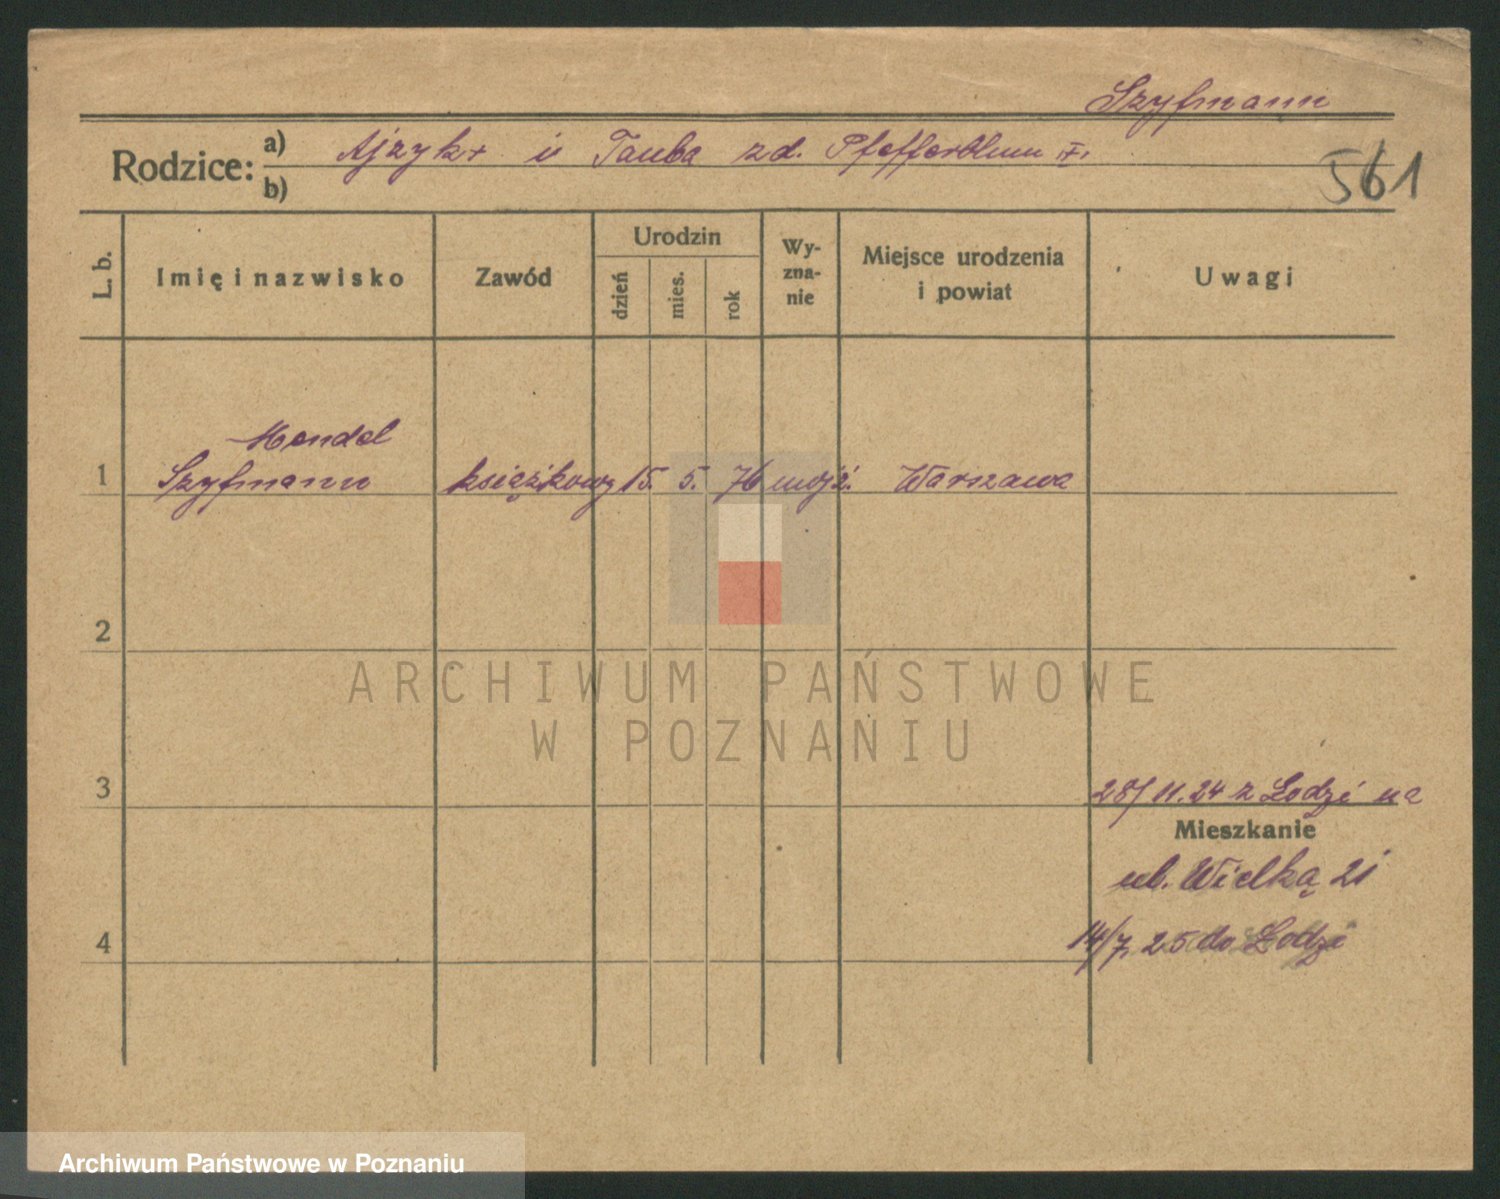 Szyfmann
Rodzice: a) Ajzyk + i Tauba zd. Pfefferblum
b)
561
L. b.
Imię i nazwisko
Zawód
Urodzin
dzień
mies.
rok
Wy-
zna-
nie
Miejsce urodzenia
i powiat
Uwagi
Mendel
1 Szyfmann książkowy 15. 5. 76 mojż. Warszawa
2
ARCHIWUM PAŃSTWOWE
W POZNANIU
3 28/11.24 z Łodzi na
Mieszkanie
ul. Wielką 21
4 14/7 25 do Łodzi
Archiwum Państwowe w Poznaniu